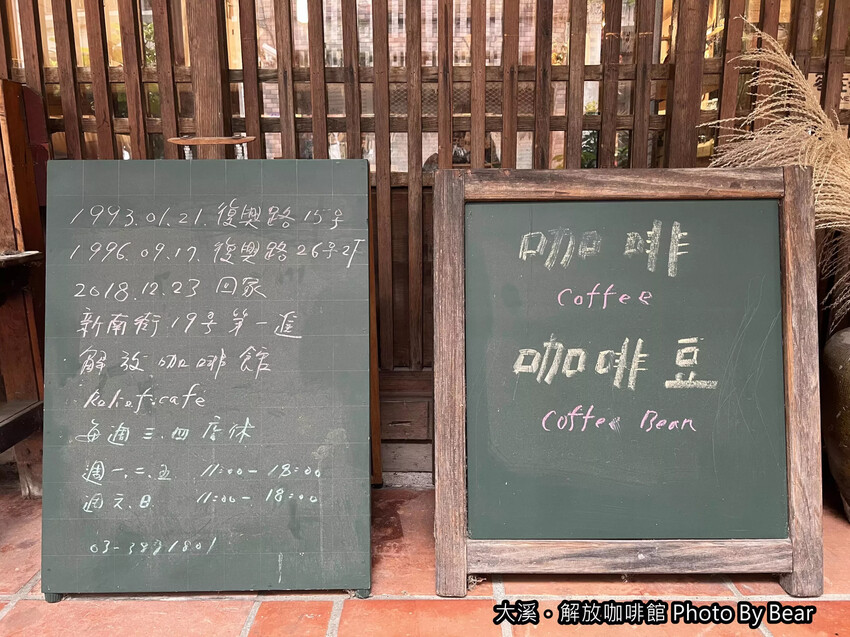 1993.01.21. 復興路15号
1996.09.17. 復興路26号2F
2018.12.23 回家
新南街19号第一進
解放咖啡館
Relief.cafe
每週三.四店休
週一.二.五 11:00-18:00
週六.日 11:00-18:00
03-3881801
咖啡
Coffee
咖啡豆
Coffee Bean
大溪・解放咖啡館 Photo By Bear